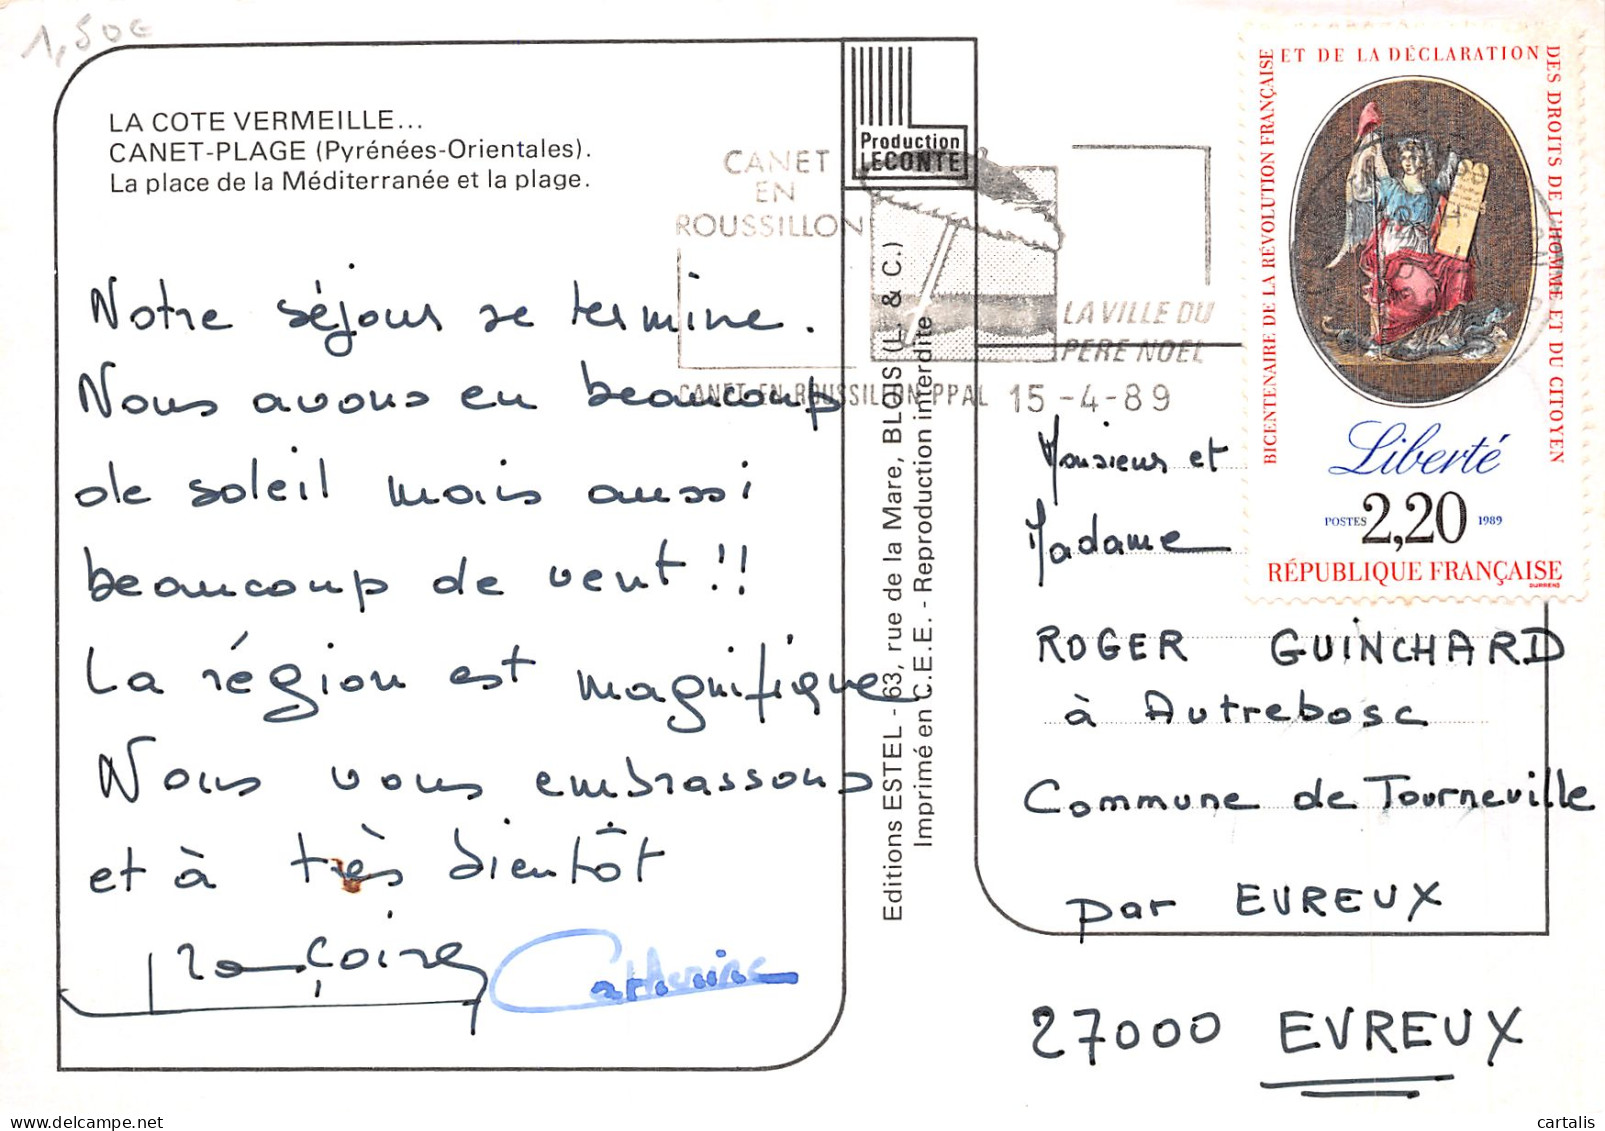 1,50€
LA COTE VERMEILLE...
CANET-PLAGE (Pyrénées-Orientales).
La place de la Méditerranée et la plage.
Notre séjour se termine.
Nous avons eu beaucoup
de soleil mais aussi
beaucoup de vent !!
La région est magnifique
Nous vous embrassons
et à très bientôt
Françoise Catherine
Production
LECONTE
Editions ESTEL - 63, rue de la Mare, BLOIS (L. & C.)
Imprimé en C.E.E. - Reproduction interdite
CANET
EN
ROUSSILLON
LA VILLE DU
PERE NOEL
CANET-EN-ROUSSILLON PPAL 15-4-89
BICENTENAIRE DE LA RÉVOLUTION FRANÇAISE
ET DE LA DÉCLARATION
DES DROITS DE L'HOMME ET DU CITOYEN
Liberté
POSTES 2,20 1989
RÉPUBLIQUE FRANÇAISE
DURRENS
Monsieur et
Madame
ROGER GUINCHARD
à Autrebosc
Commune de Tourneville
par EVREUX
27000 EVREUX
delcampe.net
cartalis